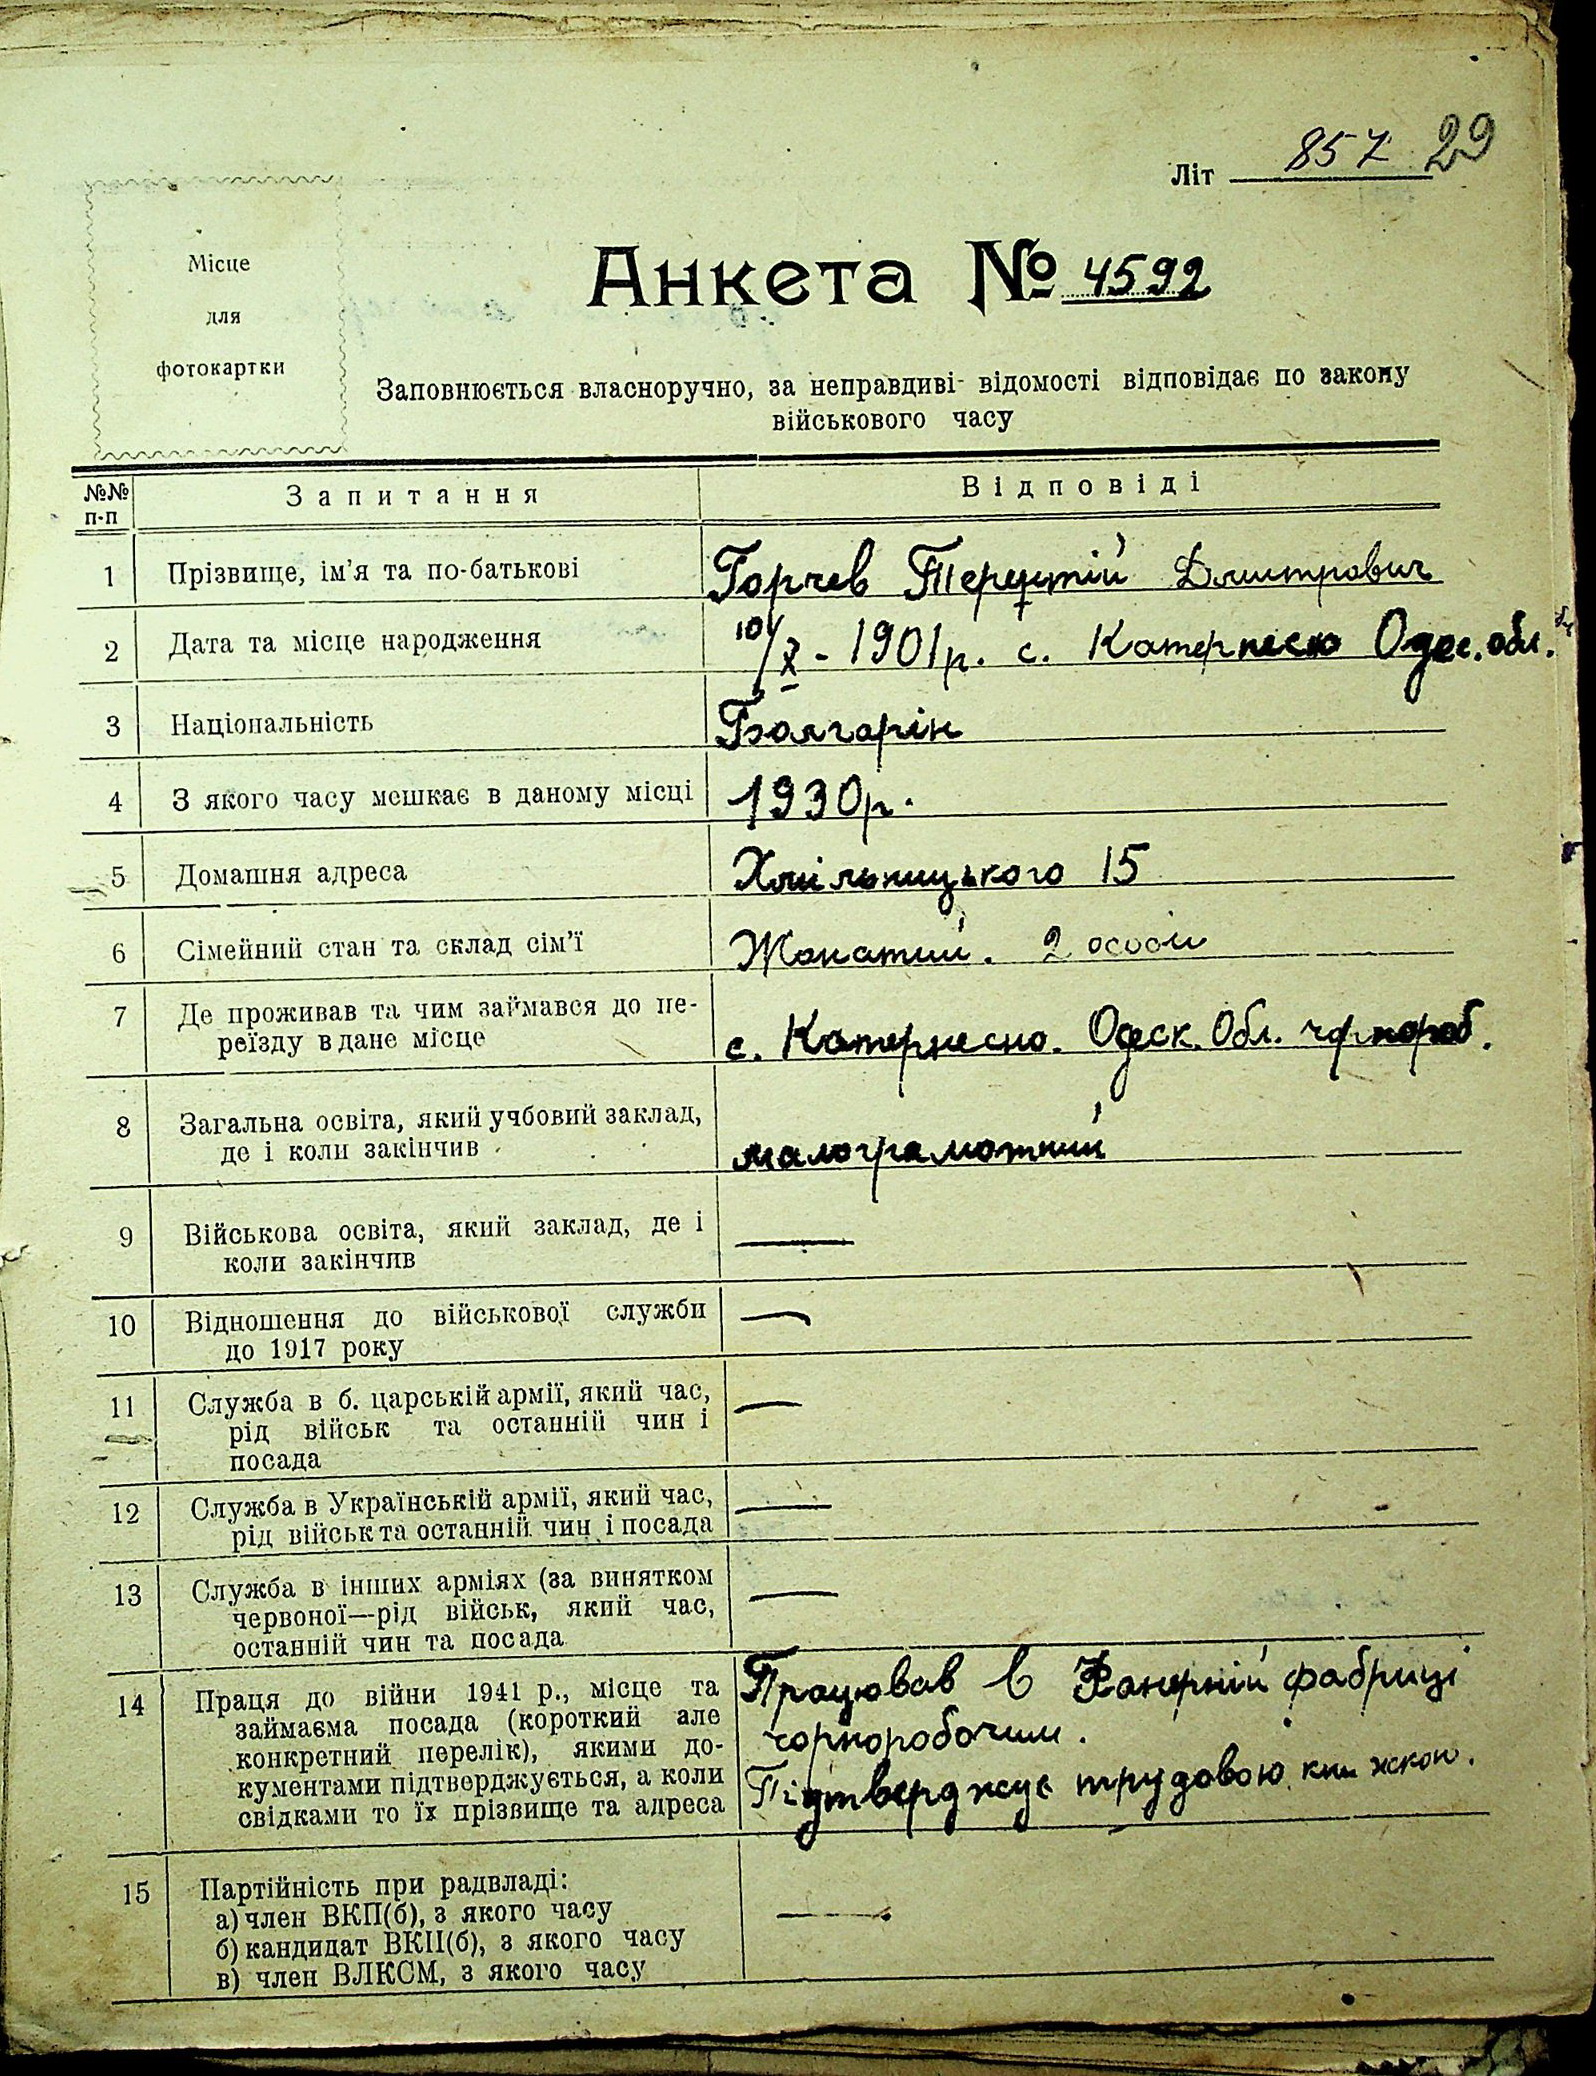 Літ 857 29
Місце
для
фотокартки
Анкета № 4592
Заповнюється власноручно, за неправдиві відомості відповідає по закону
військового часу
№№ п-п Запитання Відповіді
1 Прізвище, ім'я та по-батькові Горчев Терентій Дмитрович
2 Дата та місце народження 10/X - 1901р. с. Одес. обл.
3 Національність Болгарін
4 З якого часу мешкає в даному місці 1930р.
5 Домашня адреса Хмільницького 15
6 Сімейний стан та склад сім'ї Жонатий. 2 особи
7 Де проживав та чим займався до пе-
реїзду в дане місце с. Катернесно. Одеск. Обл. чорнороб.
8 Загальна освіта, який учбовий заклад,
де і коли закінчив малограмотний
9 Військова освіта, який заклад, де і
коли закінчив —
10 Відношення до військової служби
до 1917 року —
11 Служба в б. царській армії, який час,
рід військ та останній чин і
посада —
12 Служба в Українській армії, який час,
рід військ та останній чин і посада —
13 Служба в інших арміях (за винятком
червоної—рід військ, який час,
останній чин та посада —
14 Праця до війни 1941 р., місце та
займаєма посада (короткий але
конкретний перелік), якими до-
кументами підтверджується, а коли
свідками то їх прізвище та адреса
Працював в Фанерній фабриці
чорноробочим.
Підтверджує трудовою книжкою.
15 Партійність при радвладі:
а) член ВКП(б), з якого часу
б) кандидат ВКП(б), з якого часу
в) член ВЛКСМ, з якого часу —